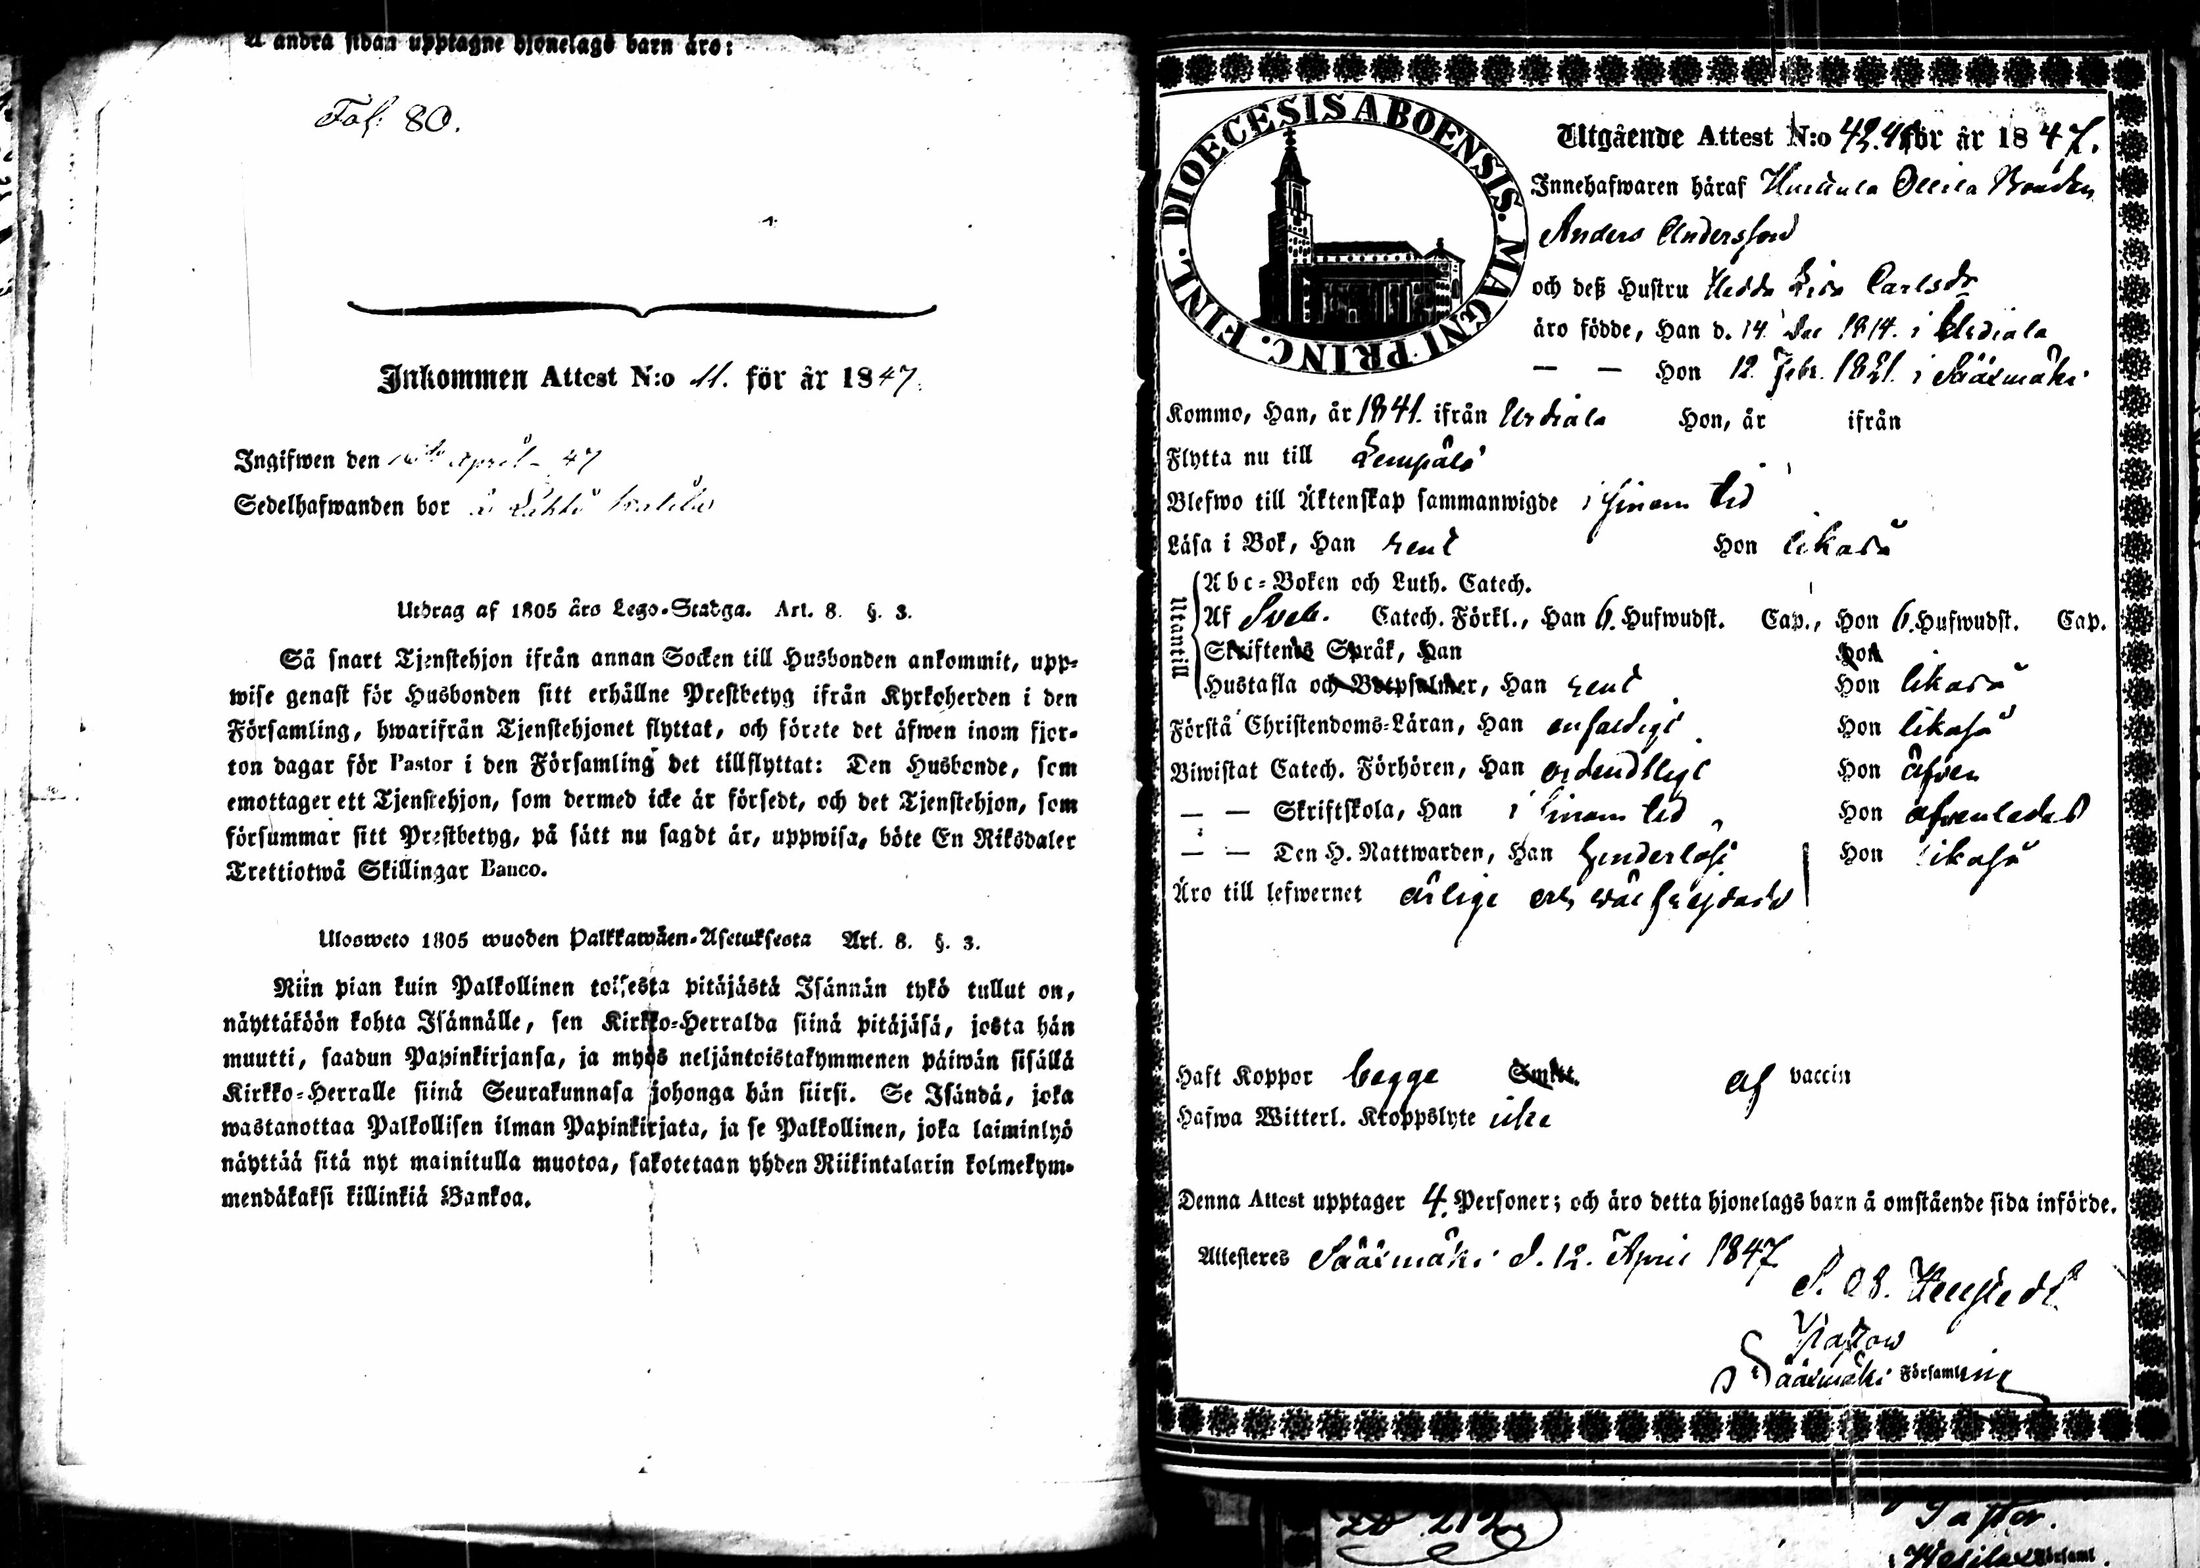 Å andra sidan upptagne hjonelags barn äro:
Fol. 80.
Inkommen Attest N:o 11. för år 1847.
Ingifwen den April 47
Sedelhafwanden bor
Utdrag af 1805 års Lego-Stadga. Art. 8. §. 3.
Så snart Tjenstehjon ifrån annan Socken till Husbonden ankommit, upp-
wise genast för Husbonden sitt erhållne Prestbetyg ifrån Kyrkoherden i den
Församling, hwarifrån Tjenstehjonet flyttat, och förete det äfwen inom fjor-
ton dagar för Pastor i den Församling det tillflyttat: Den Husbonde, som
emottager ett Tjenstehjon, som dermed icke är försedt, och det Tjenstehjon, som
försummar sitt Prestbetyg, på sätt nu sagdt är, uppwisa, böte En Riksdaler
Trettiotwå Skillingar Banco.
Ulosweto 1805 wuoden Palkkawäen-Asetuksesta Art. 8. §. 3.
Niin pian kuin Palkollinen toisesta pitäjästä Isännän tykö tullut on,
näyttäköön kohta Isännälle, sen Kirkko-Herralda siinä pitäjäsä, josta hän
muutti, saadun Papinkirjansa, ja myös neljäntoistakymmenen päiwän sisällä
Kirkko-Herralle siinä Seurakunnasa johonga hän siirsi. Se Isändä, joka
wastanottaa Palkollisen ilman Papinkirjata, ja se Palkollinen, joka laiminlyö
näyttää sitä nyt mainitulla muotoa, sakotetaan yhden Riikintalarin kolmekym-
mendäkaksi killinkiä Bankoa.
DIOECESIS ABOENSIS. MAGNI PRINC. FINL.
Utgående Attest N:o för år 1847.
Innehafwaren häraf
Anders Andersson
och deß Hustru Hedda Lisa Carlsdr
äro födde, Han d. 14 Dec 1814. i Urdiala
— — Hon 12 Febr. 1821. i Sääxmäki
Kommo, Han, år 1841. ifrån Urdiala Hon, år ifrån
Flytta nu till Lempälä
Blefwo till Äktenskap sammanwigde i sinom tid
Läsa i Bok, Han rent Hon likaså
Utantill
Abc-Boken och Luth. Catech.
Af Sveb. Catech. Förkl., Han 6. Hufwudst. Cap., Hon 6. Hufwudst. Cap.
Skriftenes Språk, Han Hon
Hustafla och Botpsalmer, Han rent Hon likaså
Förstå Christendoms-Läran, Han enfaldigt Hon likaså
Biwistat Catech. Förhören, Han ordendtligt Hon äfven
— — Skriftskola, Han i sinom tid Hon äfvenledes
— — Den H. Nattwarden, Han hinderlöst Hon likaså
Äro till lefwernet ärlige och wäl frejdade
Haft Koppor begge Smitt. af vaccin
Hafwa Witterl. Kroppslyte icke
Denna Attest upptager 4. Personer; och äro detta hjonelags barn å omstående sida införde.
Attesteres Sääxmäki d. 12. April 1847
Pastor
Sääxmäki Församling
212
Pastor.
Församl.